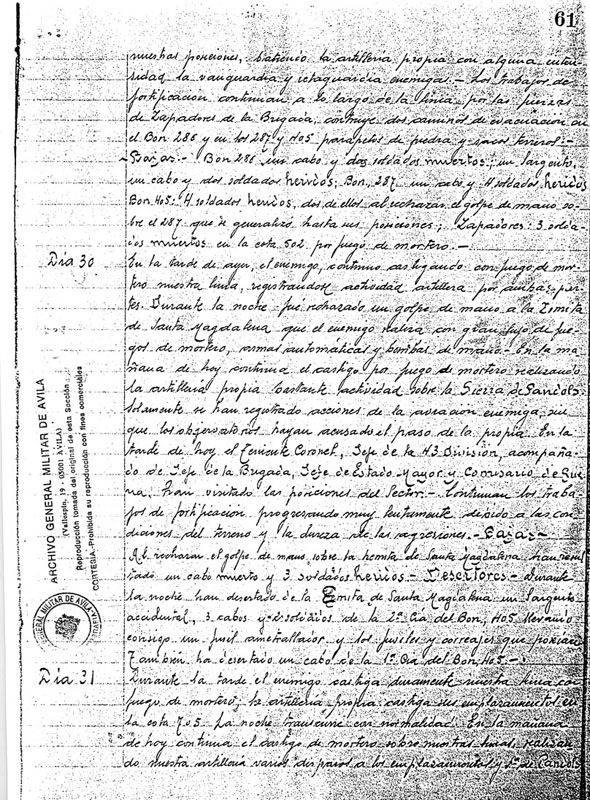 61
nuestras posiciones, batiendo la artillería propia con alguna inten-
sidad la vanguardia y retaguardia enemiga.- Los trabajos de
fortificacion continuan a lo largo de la linea por las fuerzas
de Zapadores de la Brigada, construye dos caminos de evacuacion en
el Bon 286 y en los 287 y 405 parapetos de piedra y sacos terreros.-
-Bajas.- Bon 286 un cabo y dos soldados muertos; un Sargento,
un cabo y dos soldados heridos; Bon, 287 un cabo y 4 soldados heridos
Bon 405; 4 soldados heridos, dos de ellos al rechazar el golpe de mano so-
bre el 287 que se generalizó hasta sus posiciones; Zapadores: 3 solda-
dos muertos en la cota 502 por fuego de mortero.-
Día 30
En la tarde de ayer, el enemigo, continuo castigando con fuego de mor-
tero nuestra linea, registrandose actividad artillera por ambas par-
tes. Durante la noche fué rechazado un golpe de mano a la Ermita
de Santa Magdalena que el enemigo realiza con gran lujo de fue-
gos de mortero, armas automáticas y bombas de mano. En la ma-
ñana de hoy continua el castigo por fuego de mortero realizando
la artillería propia bastante actividad sobre la Sierra de
Solamente se han registrado acciones de la aviacion enemiga, sin
que los observatorios hayan acusado el paso de la propia. En la
tarde de hoy el Teniente Coronel, Jefe de la 43 Division, acompaña-
do de Jefe de la Brigada, Jefe de Estado Mayor y Comisario de Gue-
rra, han visitado las posiciones del Sector.- Continuan los traba-
jos de fortificacion progresando muy lentamente debido a las con-
diciones del terreno y la dureza de las agresiones.- Bajas.-
Al rechazar el golpe de mano sobre la hemita de Santa Magdalena han resul-
tado un cabo muerto y 3 soldados heridos.- Desertores- Durante
la noche han desertado de la Ermita de Santa Magdalena un Sargento
accidental, 3 cabos y soldados de la 2ª Cia del Bon, 405 llevando
consigo un fusil ametrallador y los fusiles y correajes que poseian
Tambien ha desertado un cabo de la 1ª Cia del Bon, 405 -.
Día 31
Durante la tarde el enemigo castiga duramente nuestra linea con
fuego de mortero, la artillería propia castiga sus emplazamientos en
la cota 705. La noche transcurre con normalidad. En la mañana
de hoy continua el castigo de mortero sobre nuestras lineas, realizan-
do nuestra artillería varios disparos a los emplazamientos
ARCHIVO GENERAL MILITAR DE AVILA
(Vallespín, 19 - 05001 AVILA)
Reproducción tomada del original de esta Sección
CORTESIA-Prohibida su reproducción con fines comerciales
GENERAL MILITAR DE AVILA